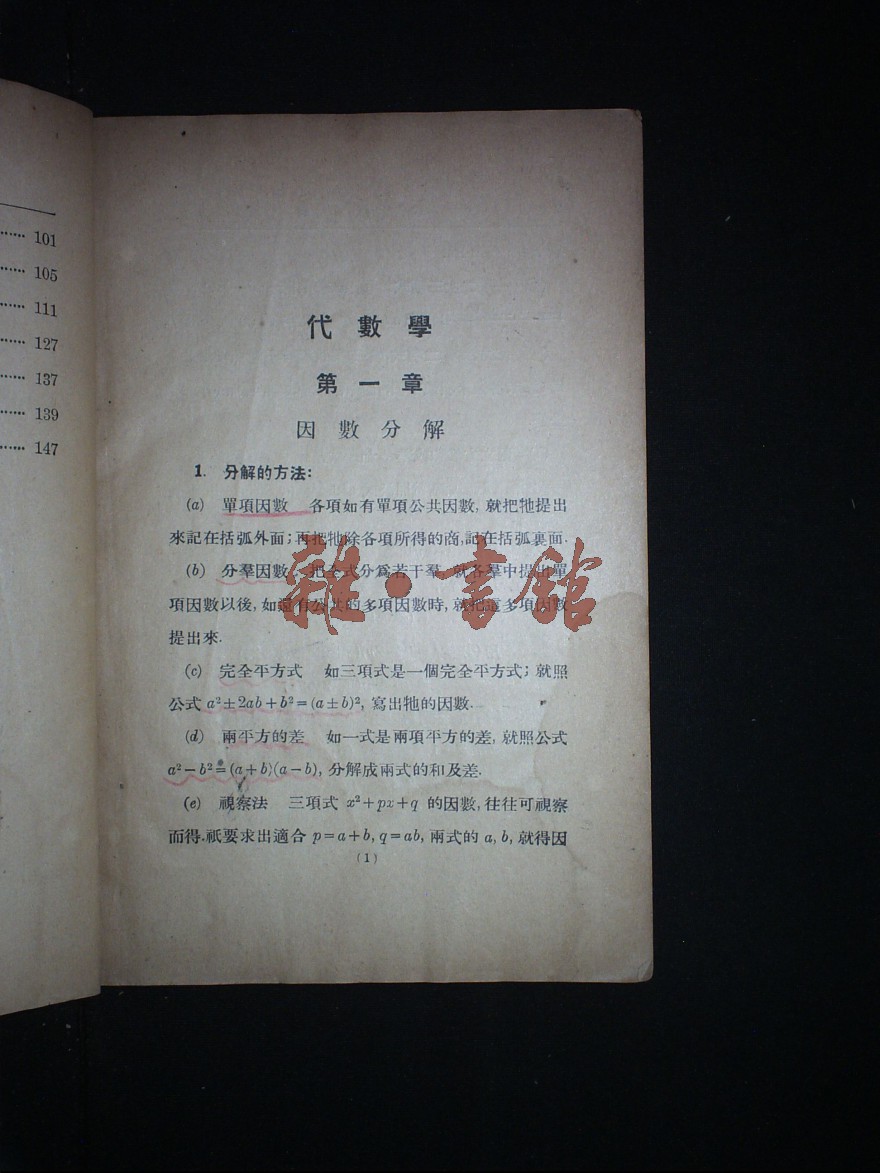 101
105
111
127
137
139
147
代數學
第一章
因數分解
1. 分解的方法:
(a) 單項因數 各項如有單項公共因數, 就把牠提出
來記在括弧外面; 再把牠除各項所得的商, 記在括弧裏面.
(b) 分羣因數 把全式分爲若干羣 就各羣中提出單
項因數以後, 如還有公共的多項因數時, 就把這多項因數
提出來.
(c) 完全平方式 如三項式是一個完全平方式; 就照
公式 a²±2ab+b²=(a±b)², 寫出牠的因數.
(d) 兩平方的差 如一式是兩項平方的差, 就照公式
a²−b²=(a+b)(a−b), 分解成兩式的和及差.
(e) 視察法 三項式 x²+px+q 的因數, 往往可視察
而得. 祇要求出適合 p=a+b, q=ab, 兩式的 a, b, 就得因
(1)
雜·書館